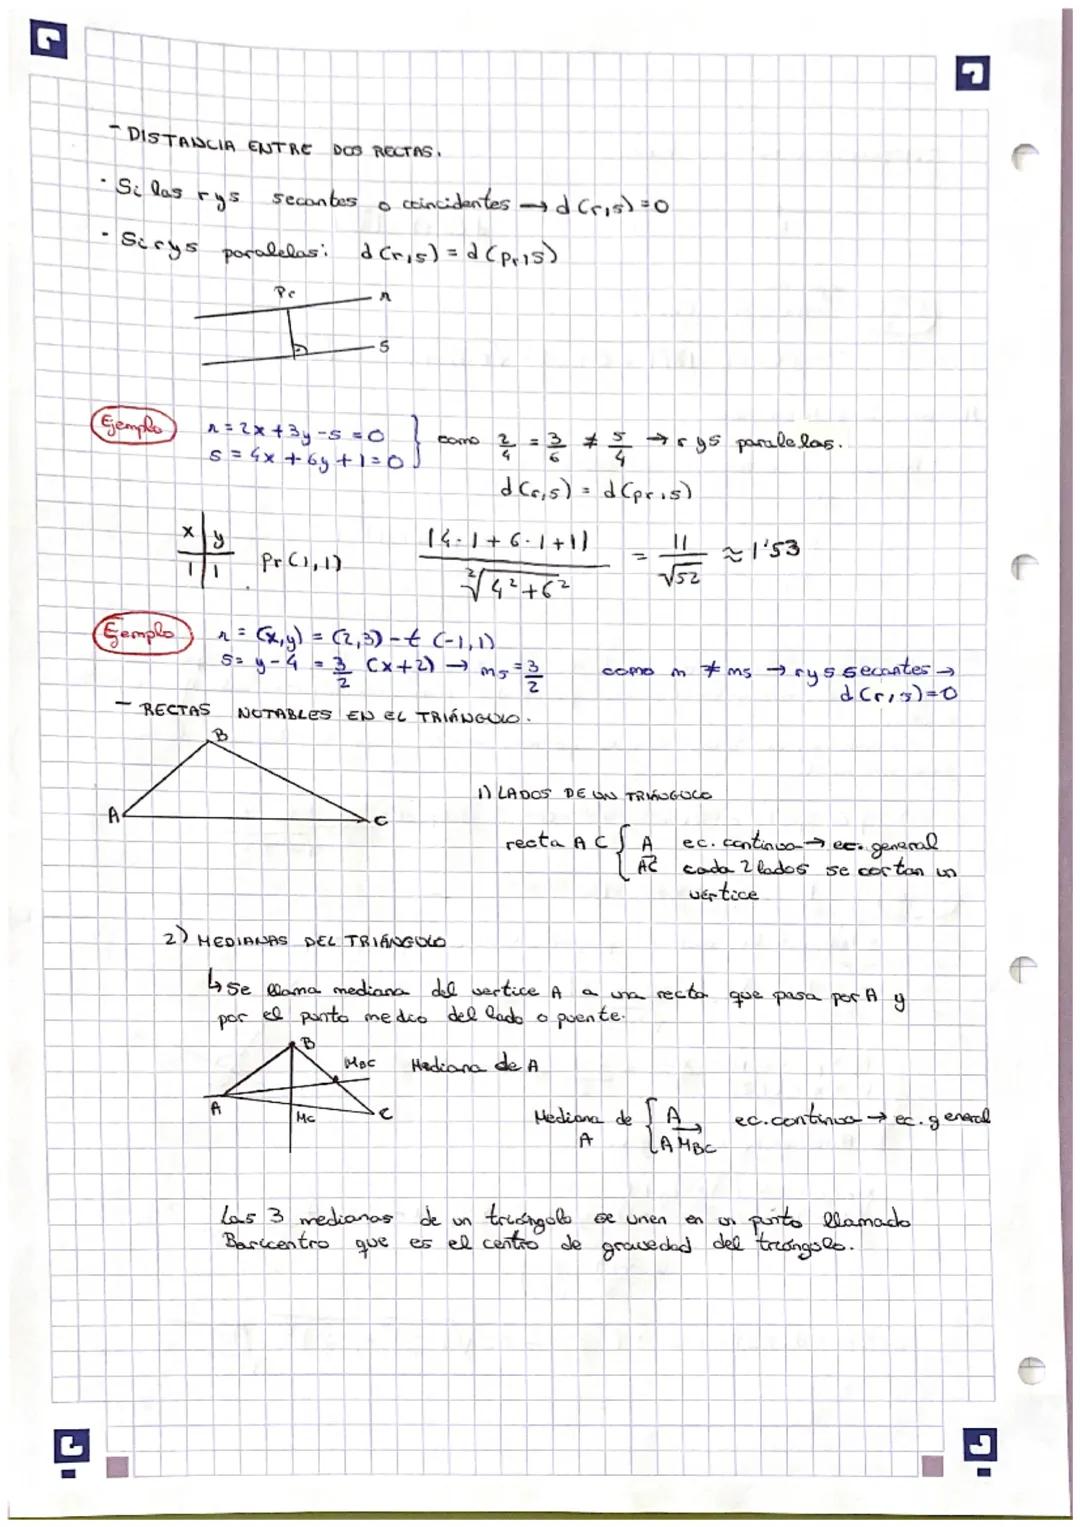 - DISTANCIA ENTRE DOS RECTAS.
· Si las r y s secantes o coincidentes → d(r,s)=0
· Si r y s paralelas: d(r,s) = d(Pr,s)
Pr r
s
Ejemplo r = 2x+3y-5=0
s = 4x+6y+1=0 } como 2/4 = 3/6 ≠ 5/4 → r y s paralelas.
d(r,s) = d(pr,s)
x | y
1 | 1 Pr(1,1) |4·1+6·1+1| / ²√4²+6² = 11/√52 ≈ 1'53
Ejemplo r = (x,y) = (2,3) - t (-1,1)
s = y-4 = 3/2 (x+2) → ms = 3/2 como m ≠ ms → r y s secantes →
d(r,s)=0
- RECTAS NOTABLES EN EL TRIÁNGULO.
B
A C
1) LADOS DE UN TRIÁNGULO
recta AC { A ec. continua → ec. general
AC cada 2 lados se cortan un
vértice
2) MEDIANAS DEL TRIÁNGULO
↳ Se llama mediana del vertice A a una recta que pasa por A y
por el punto medio del lado o puente.
B
MBC Mediana de A
A Mc C
Mediana de { A ec. continua → ec. general
A AMBC
Las 3 medianas de un triángulo se unen en un punto llamado
Baricentro que es el centro de gravedad del triángulo.